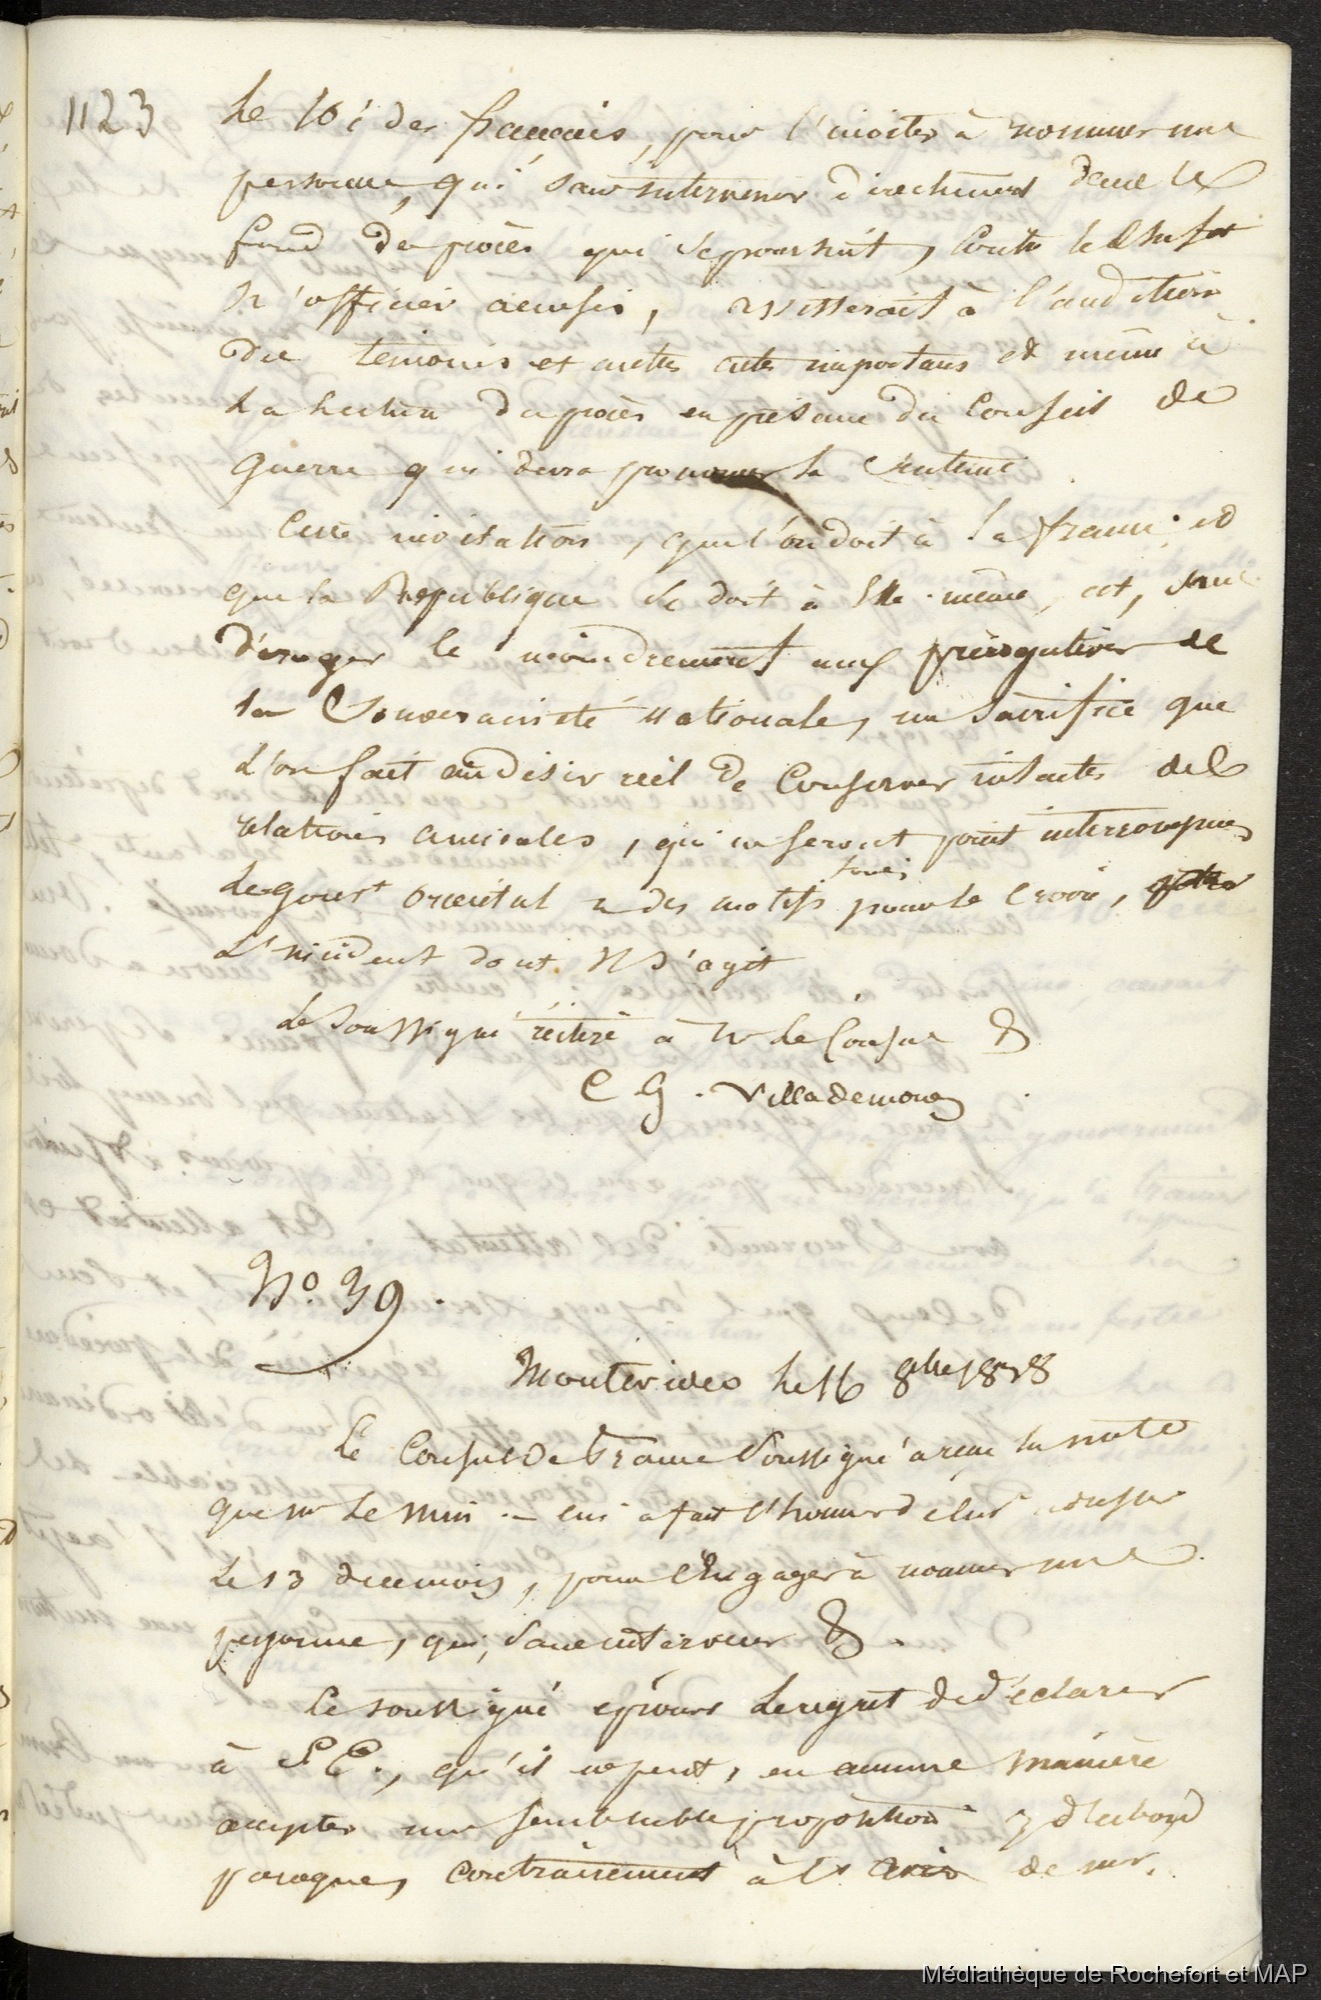 1123
Le Roi des français, pour l'inviter à nommer une
personne, qui sans intervenir directement dans le
fond du procès qui se poursuit, contre le
d'officier accusés, assisterait à l'audition
des temoins et autres actes importans et même à
la lecture du procès en présence du Conseil de
guerre qui devra prononcer la Sentence
Cette invitation, que l'on doit à la france et
que la République se doit à Elle-même, est, sans
déroger le moindrement aux prérogatives de
la Souveraineté nationale, un sacrifice que
l'on fait au désir réel de Conserver intactes des
relations amicales, qui ne seront point interrompues
Le gouvt oriental a des motifs pour le croire,
L'incident dont il s'agit
Le Soussigné réitère à Mr le Consul &
C G. Villademoros
No. 39.
Montevideo le 16 8bre 1838
Le Consul de France Soussigné a reçu la note
que Mr le Min.– lui a fait l'honneur de lui adresser
le 13 de ce mois, pour l'Engager à nommer une
personne, qui, Sans intervenir &.
Le soussigné éprouve le regret de déclarer
à S E., qu'il ne peut, en aucune manière
accepter une semblable proposition d'abord
parceque, contrairement à l'avis de Mr.
Médiathèque de Rochefort et MAP